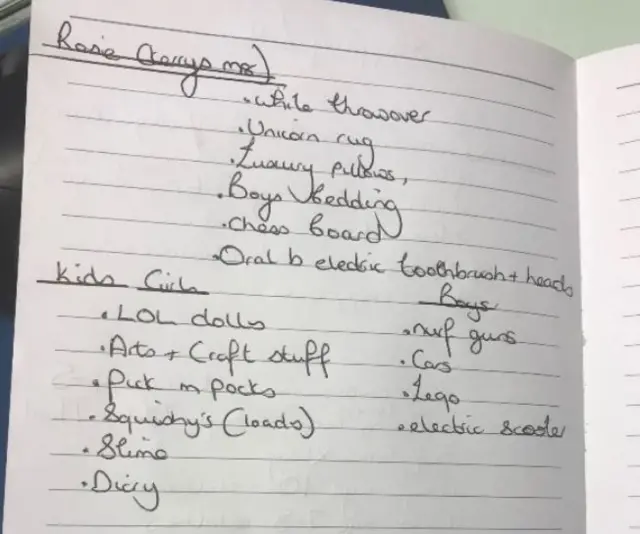 Rosie (Terrys ms)
• white throwover
• Unicorn rug
• Luxury pillows,
• Boys bedding
• chess board
• Oral b electric toothbrush + heads
Kids Girls
• LOL dolls
• Arts + Craft stuff
• Pick m packs
• Squishy's (loads)
• Slime
• Diary
Boys
• nurf guns
• Cars
• Lego
• electric scooter